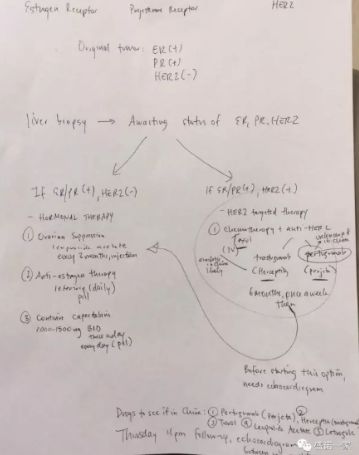 Estrogen Receptor Progesterone Receptor HER2
Original tumor: ER(+)
PR(+)
HER2(-)
liver biopsy → Awaiting status of ER, PR, HER2
If ER/PR(+), HER2(-)
- HORMONAL THERAPY
① Ovarian Suppression
leuprolide acetate
every 3 months, injection
② Anti-estrogen therapy
letrozole (daily)
pill
③ Continue capecitabine
1000-1500mg BID
twice a day
every day (pill)
If ER/PR(+), HER2(+)
- HER2 targeted therapy
① Chemotherapy + anti-HER2
(IV) trastuzumab pertuzumab
(Herceptin) (Perjeta)
in China
6 months, once a week
then
Before starting this option,
needs echocardiogram
Drugs to see if in China: ① Pertuzumab (Perjeta), ② Herceptin (trastuzumab)
③ Taxol ④ Leuprolide Acetate ⑤ Letrozole
Thursday 4pm follow-up, echocardiogram